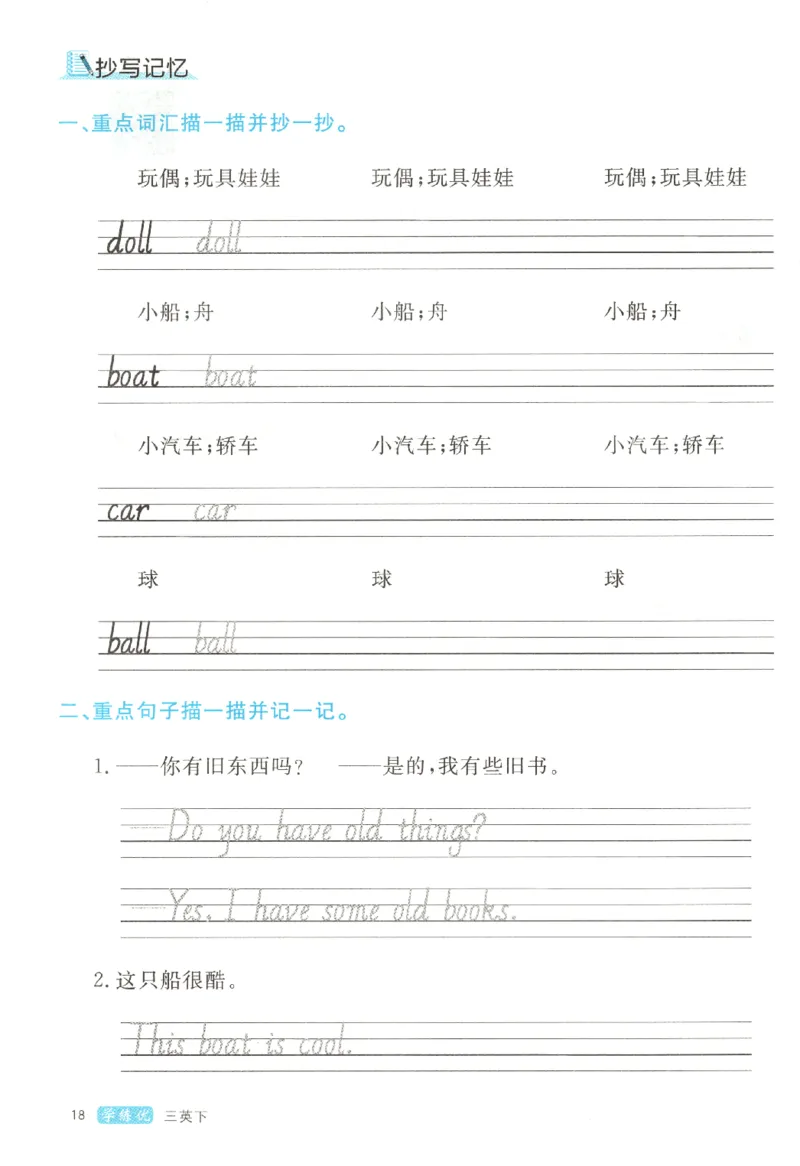 抄写记忆
一、重点词汇描一描并抄一抄。
玩偶;玩具娃娃 玩偶;玩具娃娃 玩偶;玩具娃娃
doll doll
小船;舟 小船;舟 小船;舟
boat boat
小汽车;轿车 小汽车;轿车 小汽车;轿车
car car
球 球 球
ball ball
二、重点句子描一描并记一记。
1. ——你有旧东西吗? ——是的,我有些旧书。
—Do you have old things?
—Yes, I have some old books.
2. 这只船很酷。
This boat is cool.
18 学练优 三英下